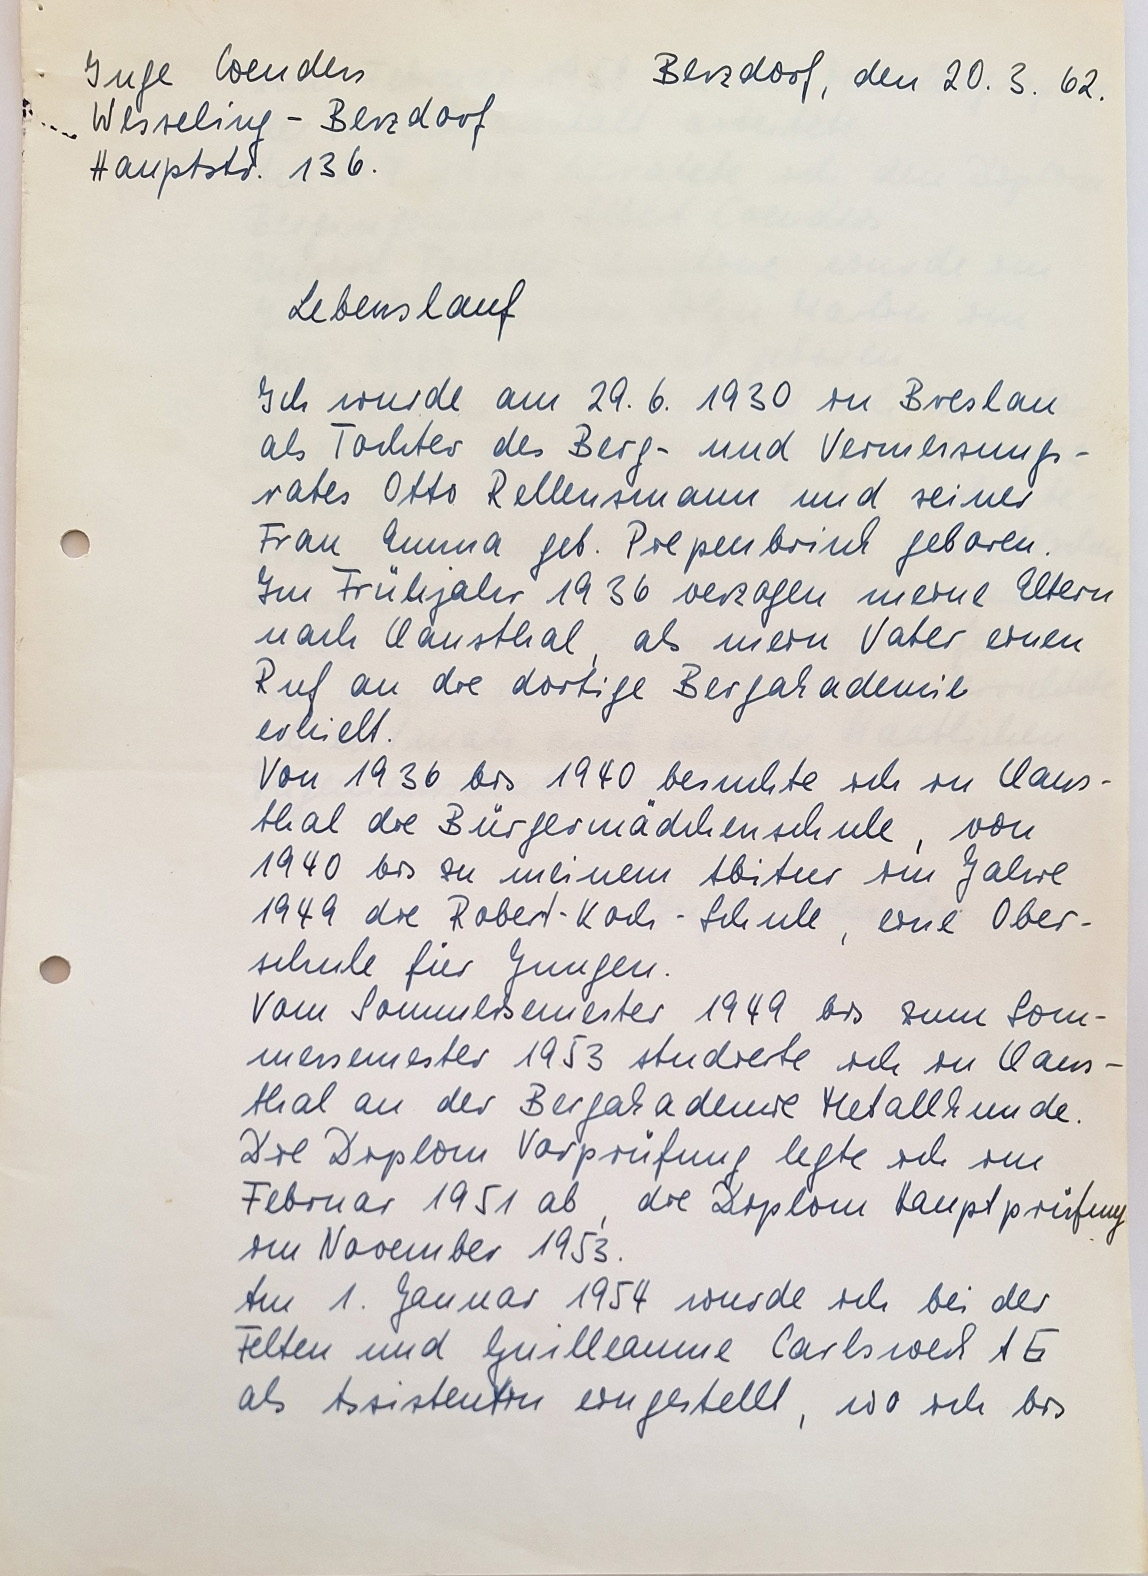 Inge Coenders
Berzdorf, den 20. 3. 62.
Wesseling - Berzdorf
Hauptstr. 136.
Lebenslauf
Ich wurde am 29. 6. 1930 in Breslau
als Tochter des Berg- und Vermessungs-
rates Otto Rellensmann und seiner
Frau Emma geb. Piepenbrink geboren.
Im Frühjahr 1936 verzogen meine Eltern
nach Clausthal, als mein Vater einen
Ruf an die dortige Bergakademie
erhielt.
Von 1936 bis 1940 besuchte ich in Claus-
thal die Bürgermädchenschule, von
1940 bis zu meinem Abitur im Jahre
1949 die Robert-Koch-Schule, eine Ober-
schule für Jungen.
Vom Sommersemester 1949 bis zum Som-
mersemester 1953 studierte ich in Claus-
thal an der Bergakademie Metallkunde.
Die Diplom Vorprüfung legte ich im
Februar 1951 ab, die Diplom Hauptprüfung
im November 1953.
Am 1. Januar 1954 wurde ich bei der
Felten und Guilleaume Carlswerk AG
als Assistentin eingestellt, wo ich bis